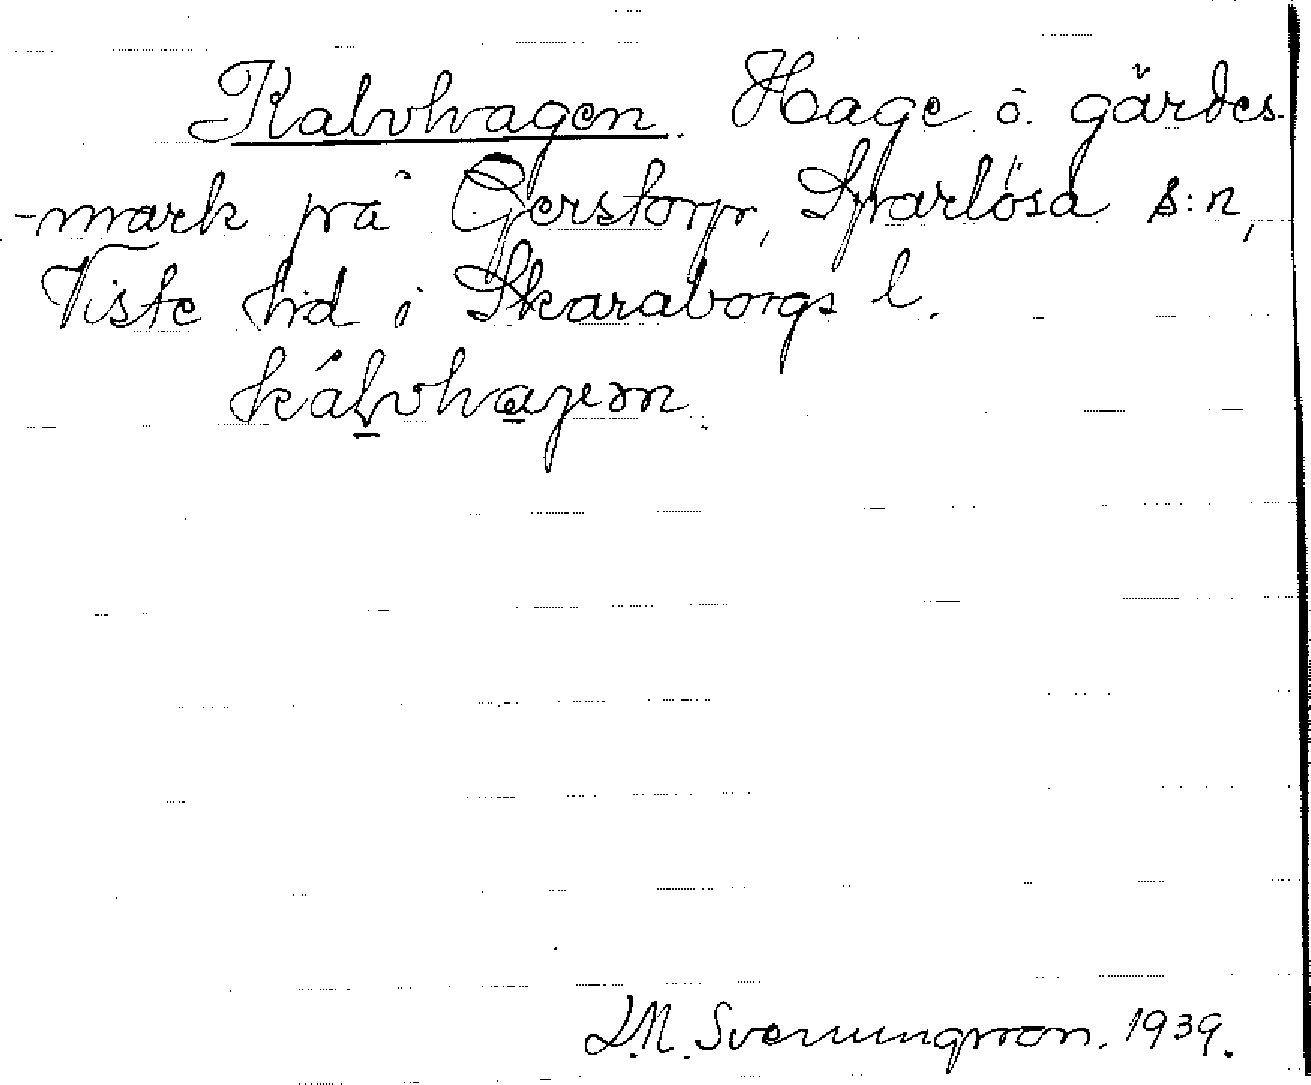 Kalvhagen. Hage o. gärdes-
-mark på Gerstorp, Sparlösa s:n,
Viste hd i Skaraborgs l.
kálvhagen
L.M. Svenungsson. 1939.